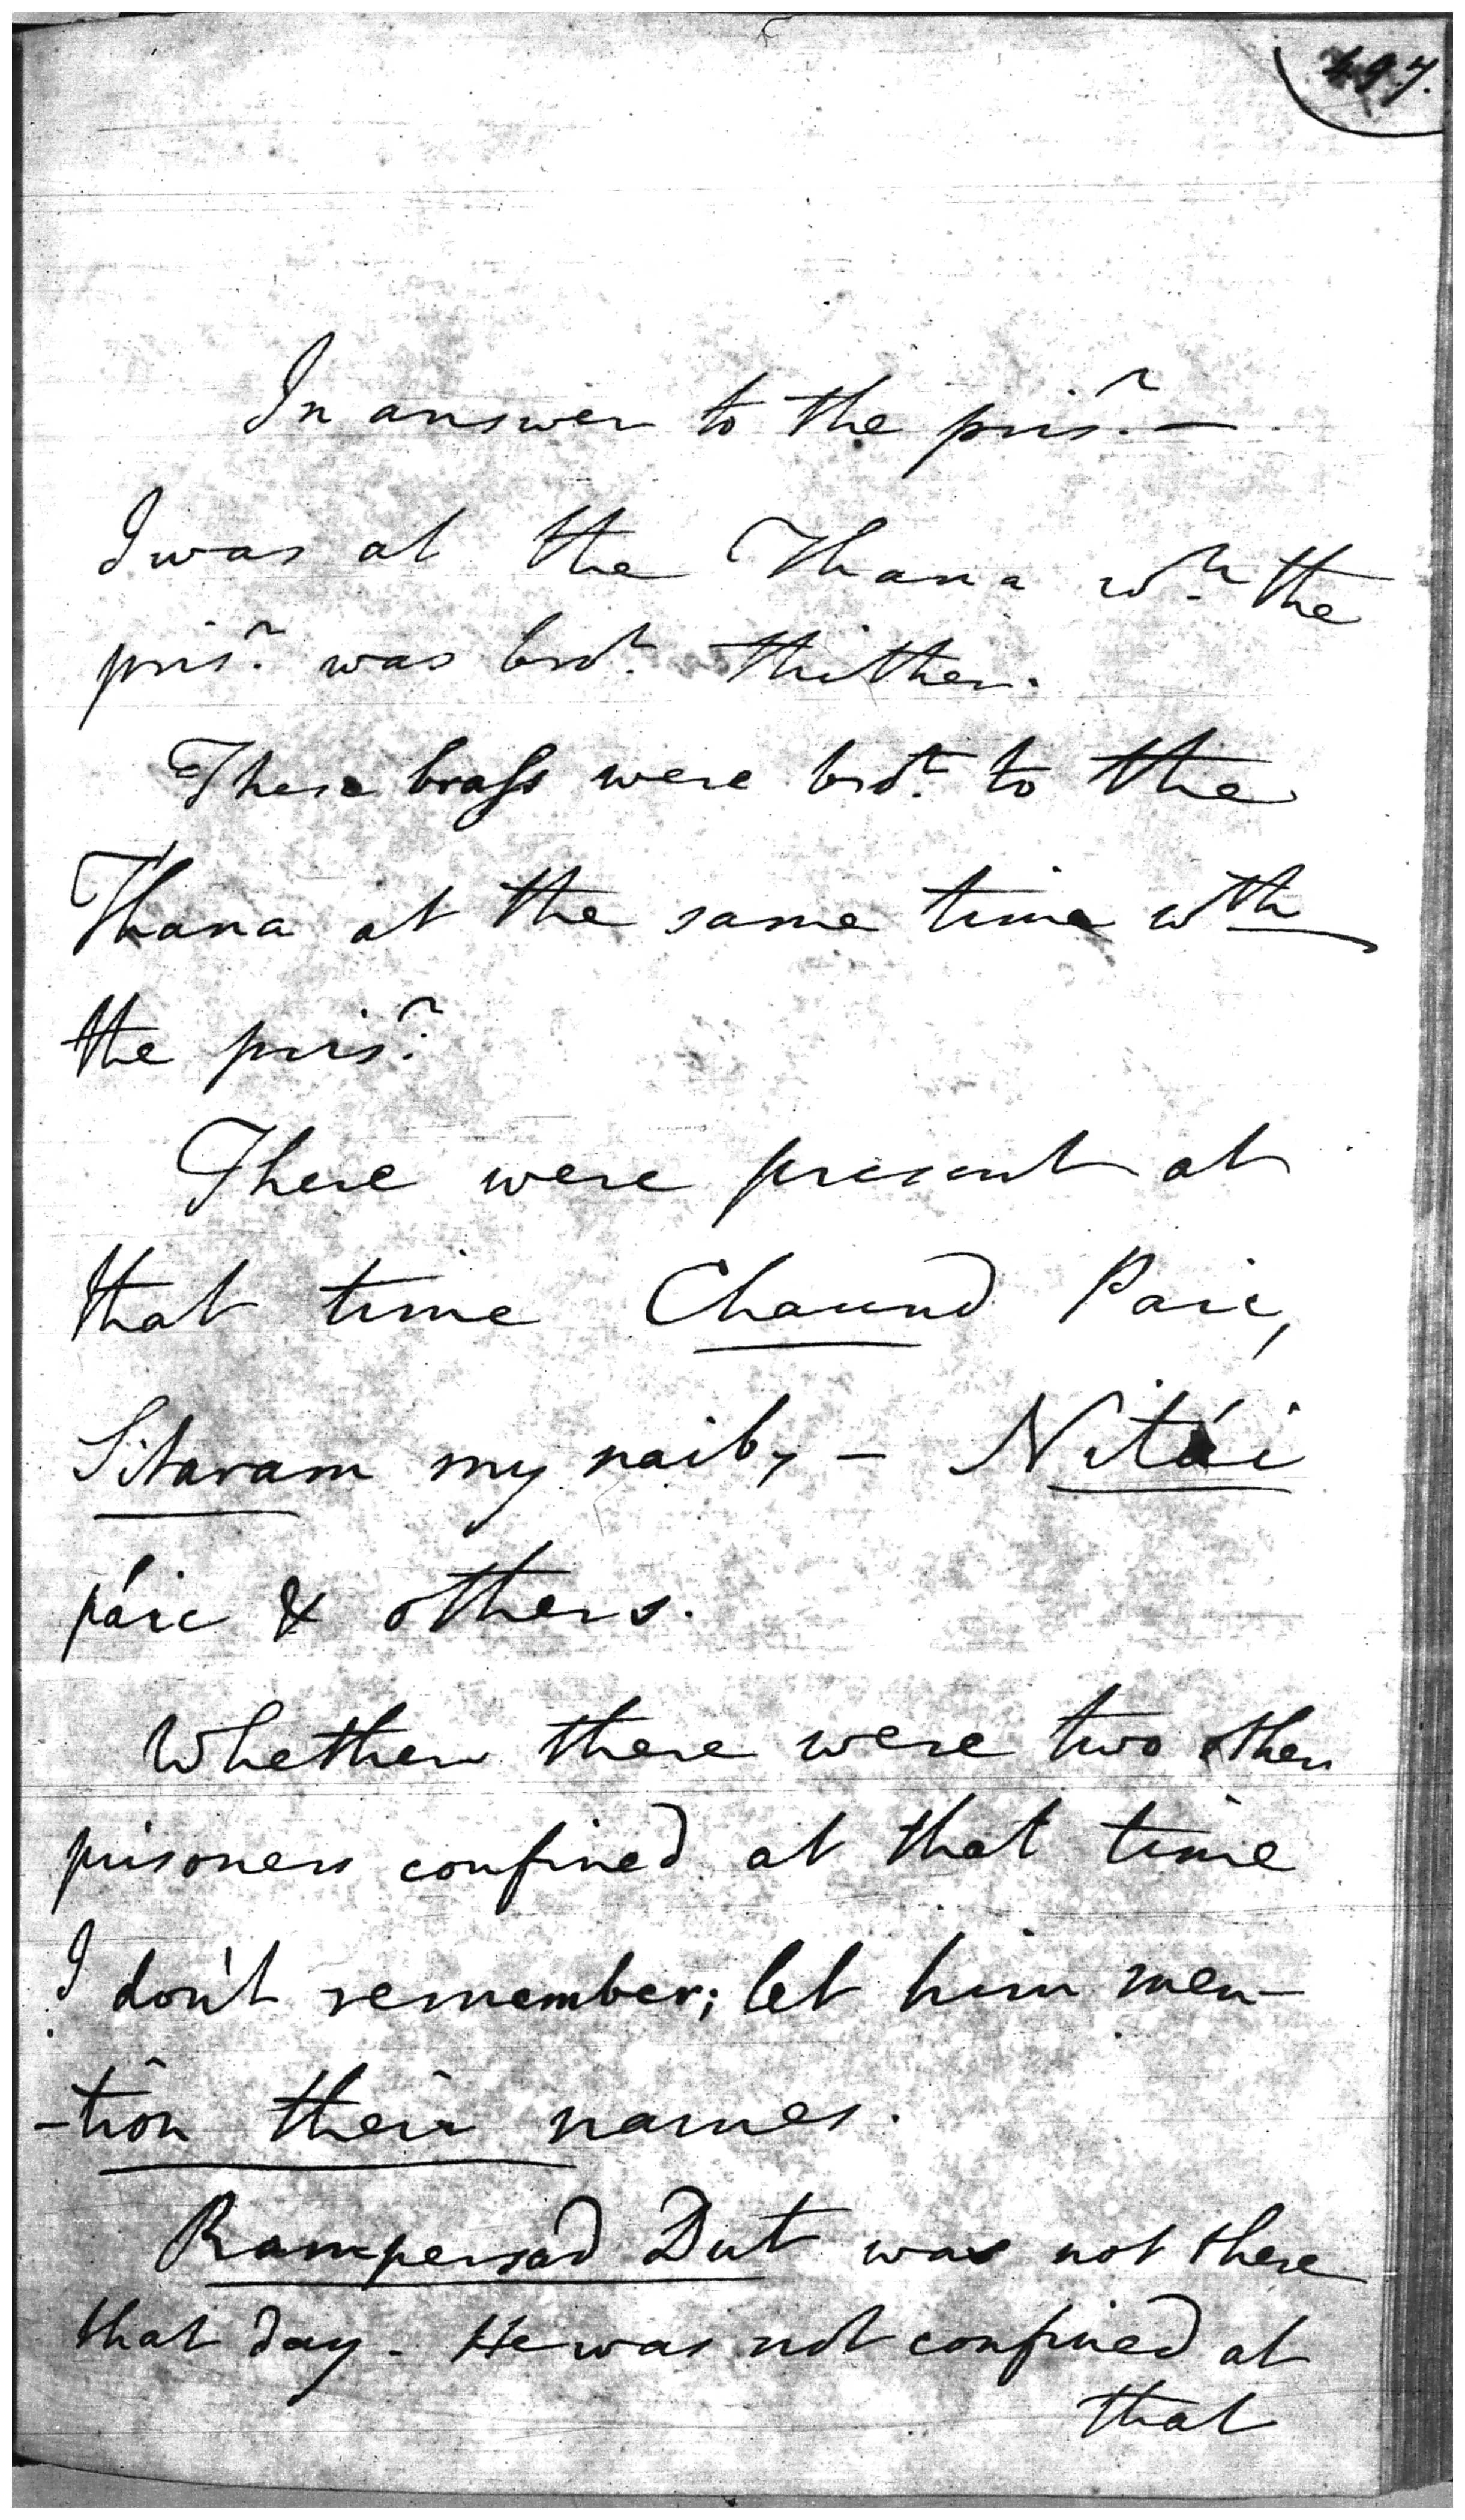 497.
In answer to the pris.r —
I was at the Thana w.n the
pris.r was bro.t thither.
These brass were bro.t to the
Thana at the same time wth
the pris.r
There were present at
that time Chaund Paic,
Sitaram my naib, – Nitái
páic & others.
Whether there were two other
prisoners confined at that time
I don't remember; let him men-
-tion their names.
Rampersad Dut was not there
that day. He was not confined at
that